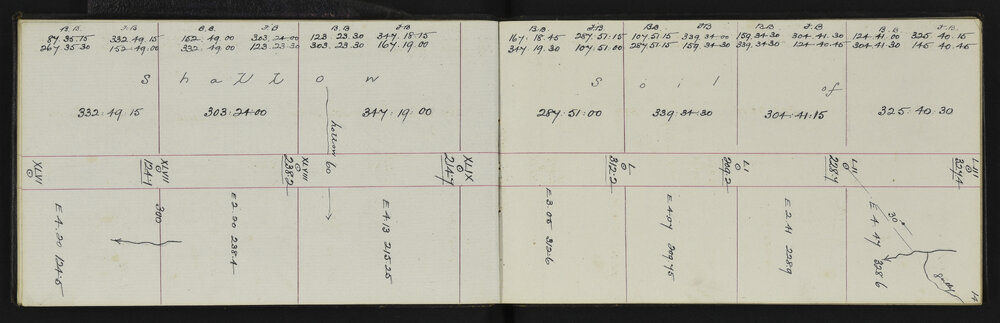 B.B. F.B B.B. F.B B.B F.B
87.35.75 332.49.15 152.49.00 303.24.00 123.23.30 347.18.15
267.35.30 152.49.00 332.49.00 123.23.30 303.23.30 167.19.00
Shallow
332.49.15 303.24.00 347.19.00
hollow 60
XLVI XLVII 124.1 XLVIII 238.2 XLIX 214.7
E 4.20 124.5
300
E 2.20 238.4
E 4.13 215.25
B.B. F.B B.B F.B B.B F.B B.B
167.18.45 287.51.15 107.51.15 339.34.00 159.34.30 304.41.30 124.41.00 325.40.15
347.19.30 107.51.00 287.51.15 159.34.30 339.34.30 124.40.45 304.41.30 145.40.45
Soil of
287.51.00 339.34.30 304.41.15 325.40.30
L 312.2 LI 209.2 LII 228.7 LIII 327.4
E 3.05 312.6
E 4.07 209.75
E 2.41 228.9
E 4.47 328.6
30°
gully
14